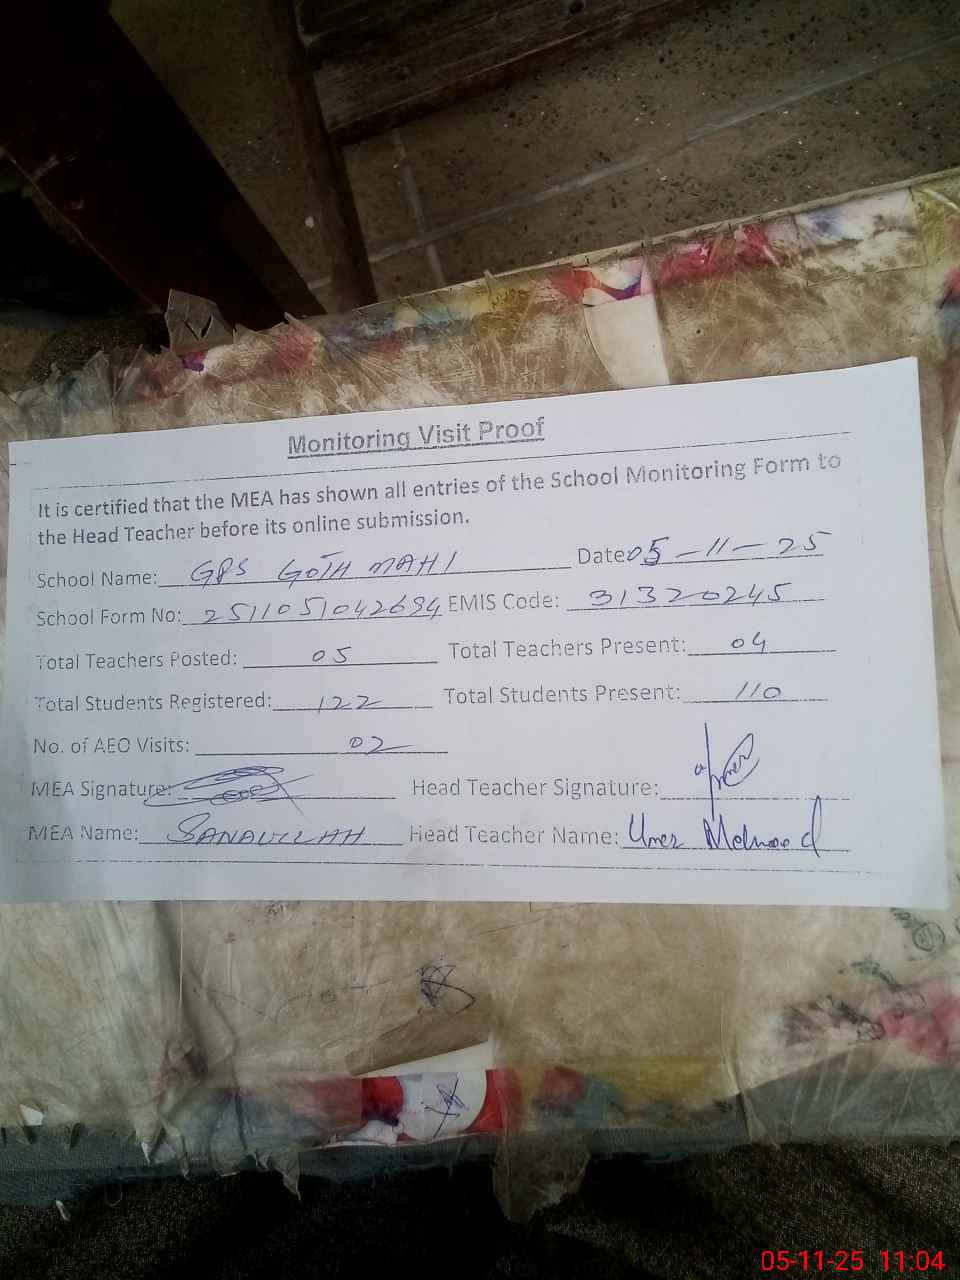 Monitoring Visit Proof
It is certified that the MEA has shown all entries of the School Monitoring Form to
the Head Teacher before its online submission.
School Name: GPS GOTH MAHI Date: 05-11-25
School Form No: 2511051042694 EMIS Code: 31320245
Total Teachers Posted: 05 Total Teachers Present: 04
Total Students Registered: 122 Total Students Present: 110
No. of AEO Visits: 02
MEA Signature: Head Teacher Signature:
MEA Name: SANAULLAH Head Teacher Name: Umer Mehmood
05-11-25 11:04